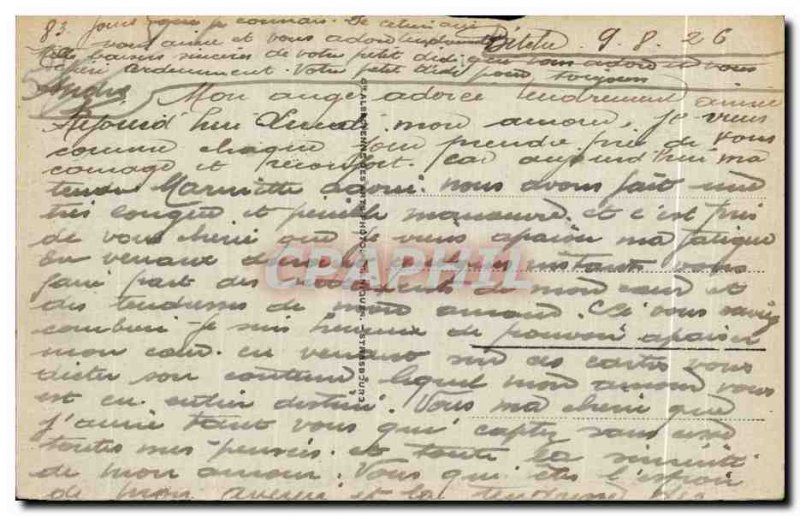 83. jours que je connais. De celui qui
vous aime et vous adore Bitche. 9.8.26
baisers sincères de votre petit Dédé que vous adore et vous
aime ardemment. Votre petit Dédé pour toujours
André
Mon ange adorée tendrement aimée
Aujourd'hui Lundi mon amour, je viens
comme chaque jour prendre près de vous
courage et réconfort. Car aujourd'hui ma
tendre Mariette adorée nous avons fait une
très longue et pénible manoeuvre. et c'est près
de vous chérie que je viens apaiser ma fatigue
en venant instants vous
faire part des de mon coeur et
des tendresses de mon amour. Si vous saviez
combien je suis heureux de pouvoir apaiser
mon coeur en venant sur ces cartes vous
dicter son contenu lequel mon amour vous
est en entier destiné. Vous ma chérie que
j'aime tant vous qui captez sans cesse
toutes mes pensées. et toute la sincérité
de mon amour. Vous qui êtes l'espoir
de mon avenir et la tendresse des
CPAPHIL